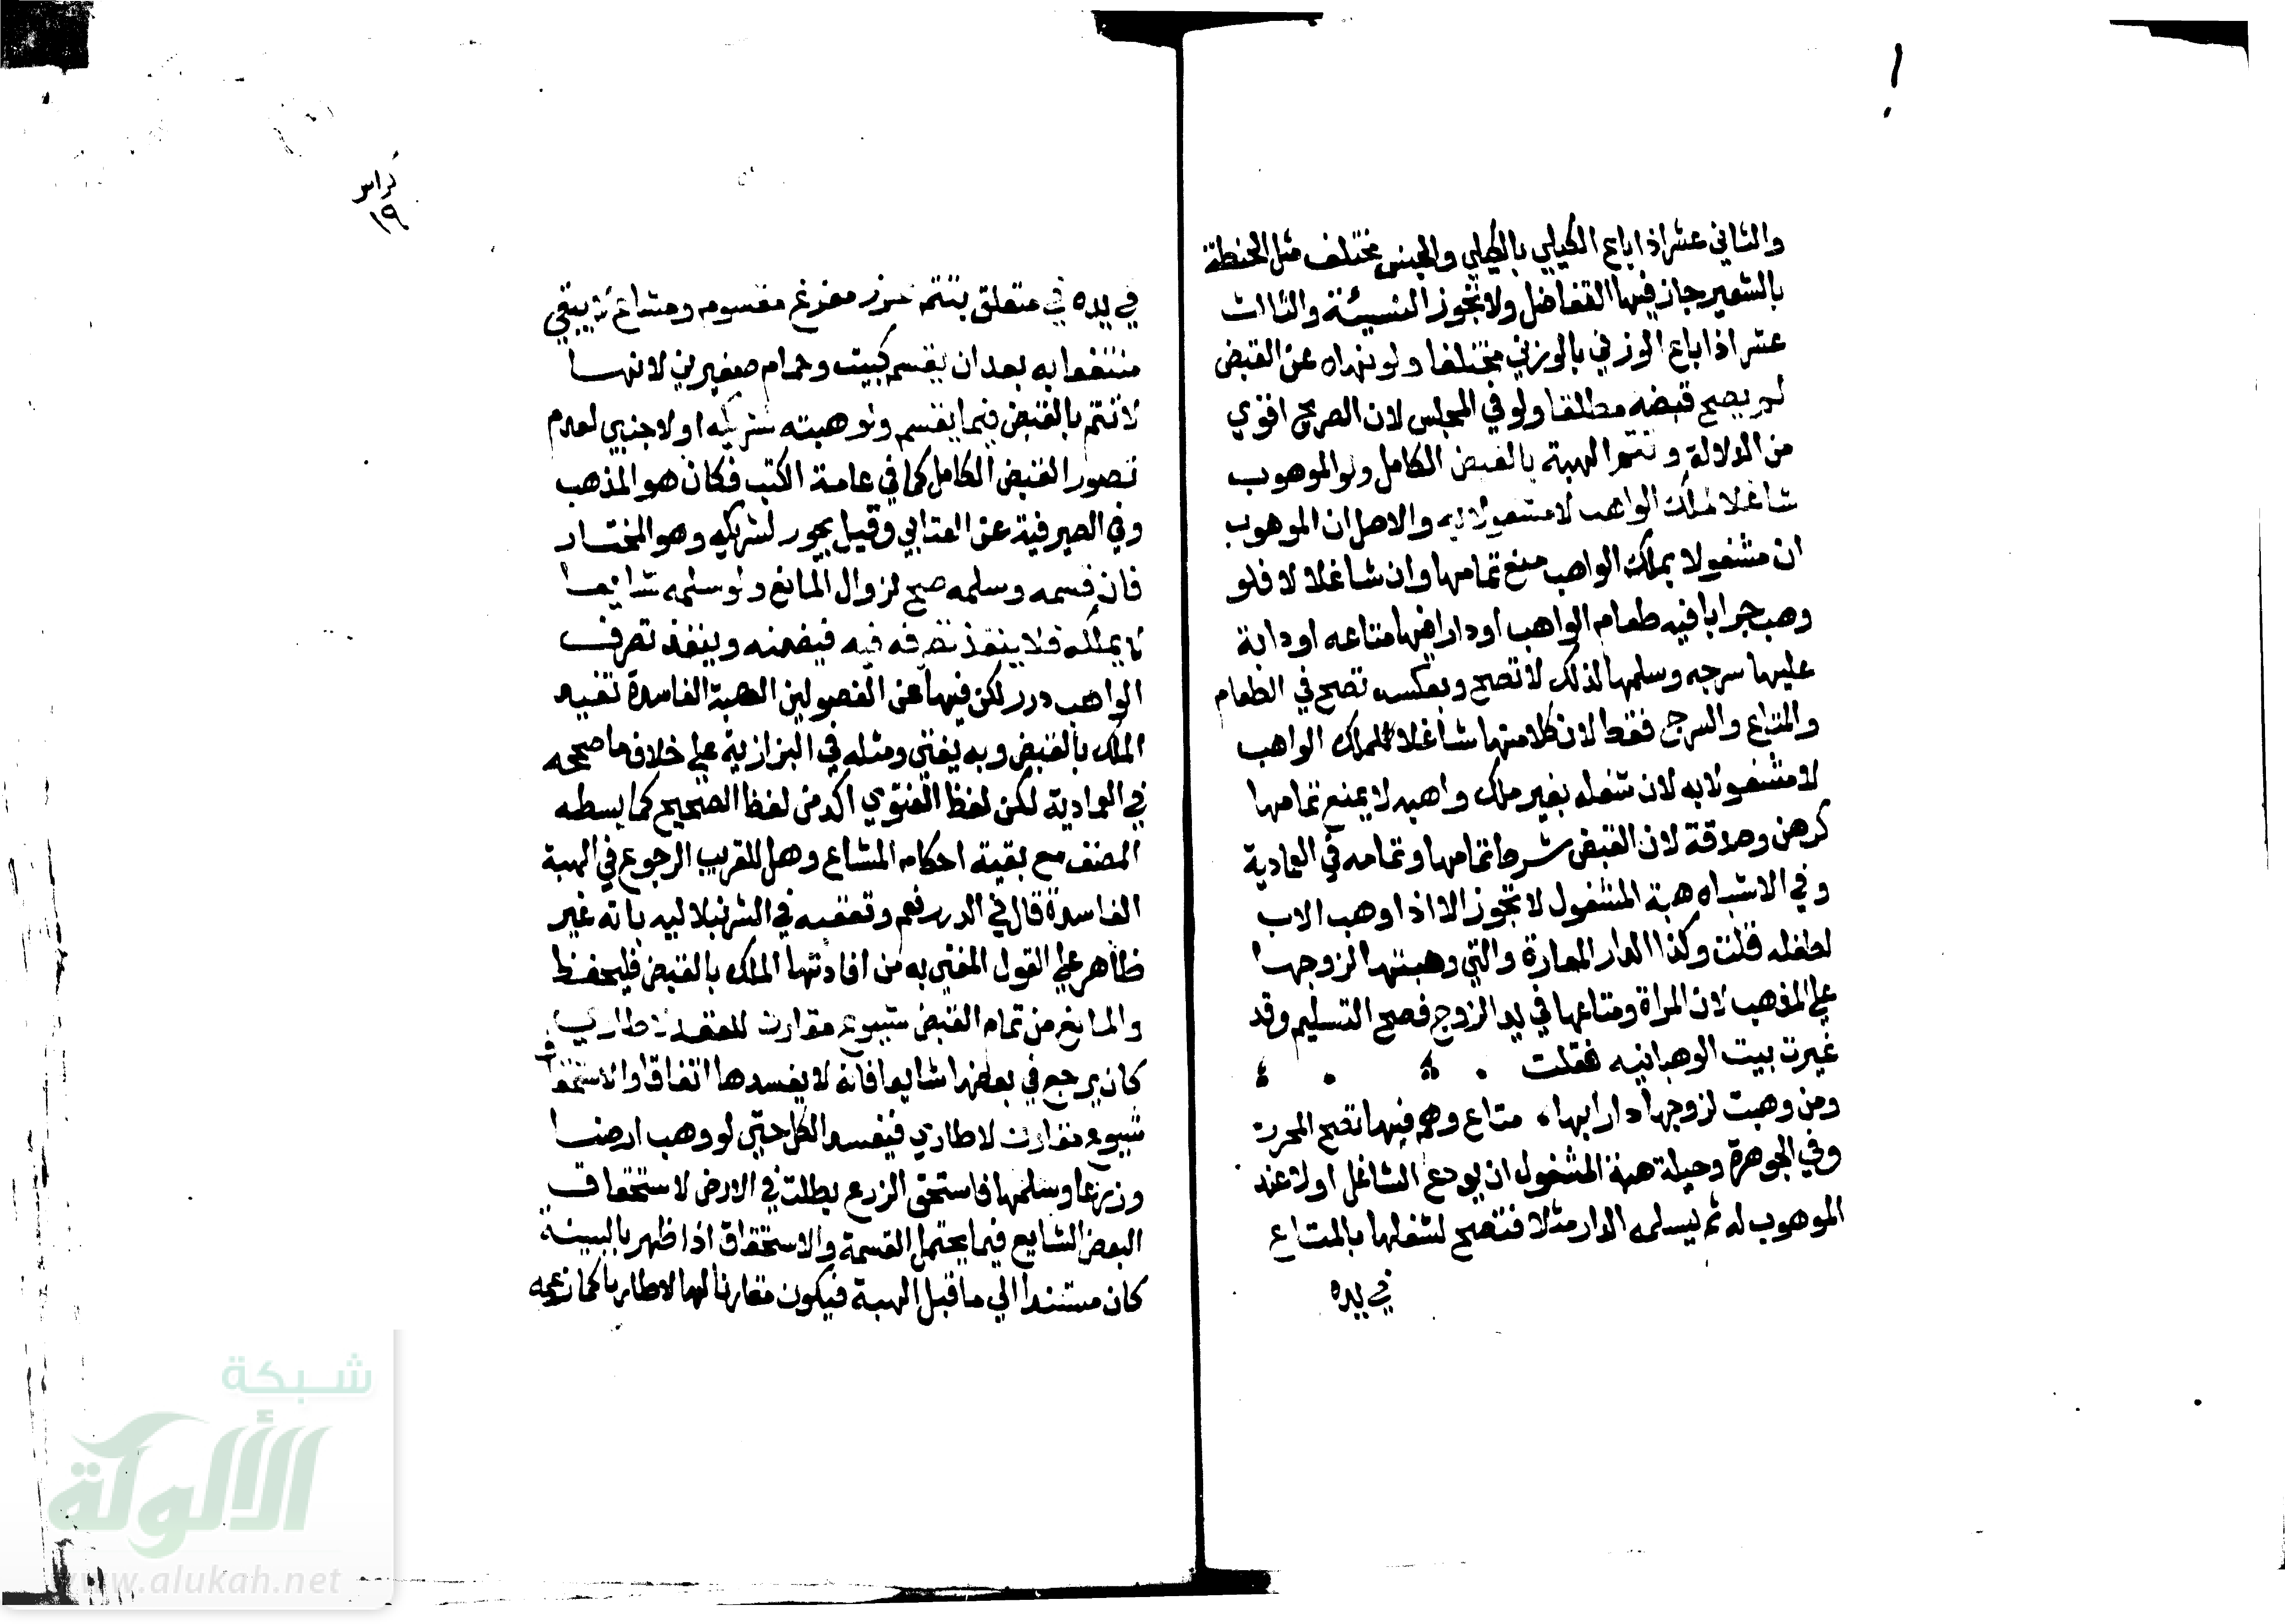 والثاني عشر اذا باع الكيلي بالكيلي والجنس مختلف مثل الحنطة
بالشعير جاز فيها التفاضل ولا تجوز النسيئة والثالث
عشر اذا باع الوزني بالوزني مختلفا ولو نهاه عن القبض
لم يصح قبضه مطلقا ولو في المجلس لان الصريح اقوي
من الدلالة وتتم الهبة بالقبض الكامل ولو الموهوب
شاغلا لملك الواهب لا مشغولا به والاصل ان الموهوب
ان مشغولا بملك الواهب منع تمامها وان شاغلا لا فلو
وهب جرابا فيه طعام الواهب او دارا فيها متاعه او دابة
عليها سرجه وسلمها لذلك لا تصح وبعكسه تصح في الطعام
والمتاع والسرج فقط لان كلا منها شاغلا لملك الواهب
لا مشغولا به لان شغله بغير ملك واهبه لا يمنع تمامها
كرهن وصدقة لان القبض شرط تمامها وتمامه في العمادية
وفي الاشباه هبة المشغول لا تجوز الا اذا وهب الاب
لطفله قلت وكذا الدار المعارة والتي وهبتها لزوجها
علي المذهب لان المراة ومتاعها في يد الزوج فصح التسليم وقد
غيرت بيت الوهبانيه فقلت
ومن وهبت لزوجها دارا بها متاع وهم فيها تصح المحرر
وفي الجوهرة وحيلة هبة المشغول ان يودع الشاغل اولا عند
الموهوب له ثم يسلمه الدار مثلا فتصح لشغلها بالمتاع
في يده
كراس
١٩
في يده في متعلق بتتم محرز مفرغ مقسوم ومشاع لا يبقي
منتفعا به بعد ان يقسم كبيت وحمام صغيرين لانها
لا تتم بالقبض فيما يقسم ولو هبته لشريكه او لاجنبي لعدم
تصور القبض الكامل كما في عامة الكتب فكان هو المذهب
وفي الصيرفية عن العتابي وقيل يجوز لشريكه وهو المختار
فان قسمه وسلمه صح لزوال المانع ولو سلمه شايعا
لا يملكه فلا ينفذ تصرفه فيه فيضمنه وينفذ تصرف
الواهب درر لكن فيها عن الفصولين الهبة الفاسدة تفيد
الملك بالقبض وبه يفتي ومثله في البزازية علي خلاف ما صححه
في العمادية لكن لفظ الفتوي اكد من لفظ الصحيح كما بسطه
المصنف مع بقية احكام المشاع وهل للقريب الرجوع في الهبة
الفاسدة قال في الدرر نعم وتعقبه في الشرنبلاليه بانه غير
ظاهر علي القول المفتي به من افادتها الملك بالقبض فليحفظ
والمانع من تمام القبض شيوع مقارن للعقد لا طاري
كان يرجع في بعضها شايعا فانه لا يفسدها اتفاقا والاستحقاق
شيوع مقارن لا طاري فيفسد الكل حتي لو وهب ارضا
وزرعا وسلمها فاستحق الزرع بطلت في الارض لاستحقاق
البعض الشايع فيما يحتمل القسمة والاستحقاق اذا ظهر بالبينة
كان مستندا الي ما قبل الهبة فيكون مقارنا لها لا طاريا كما زعمه
شبكة
الألوكة
www.alukah.net